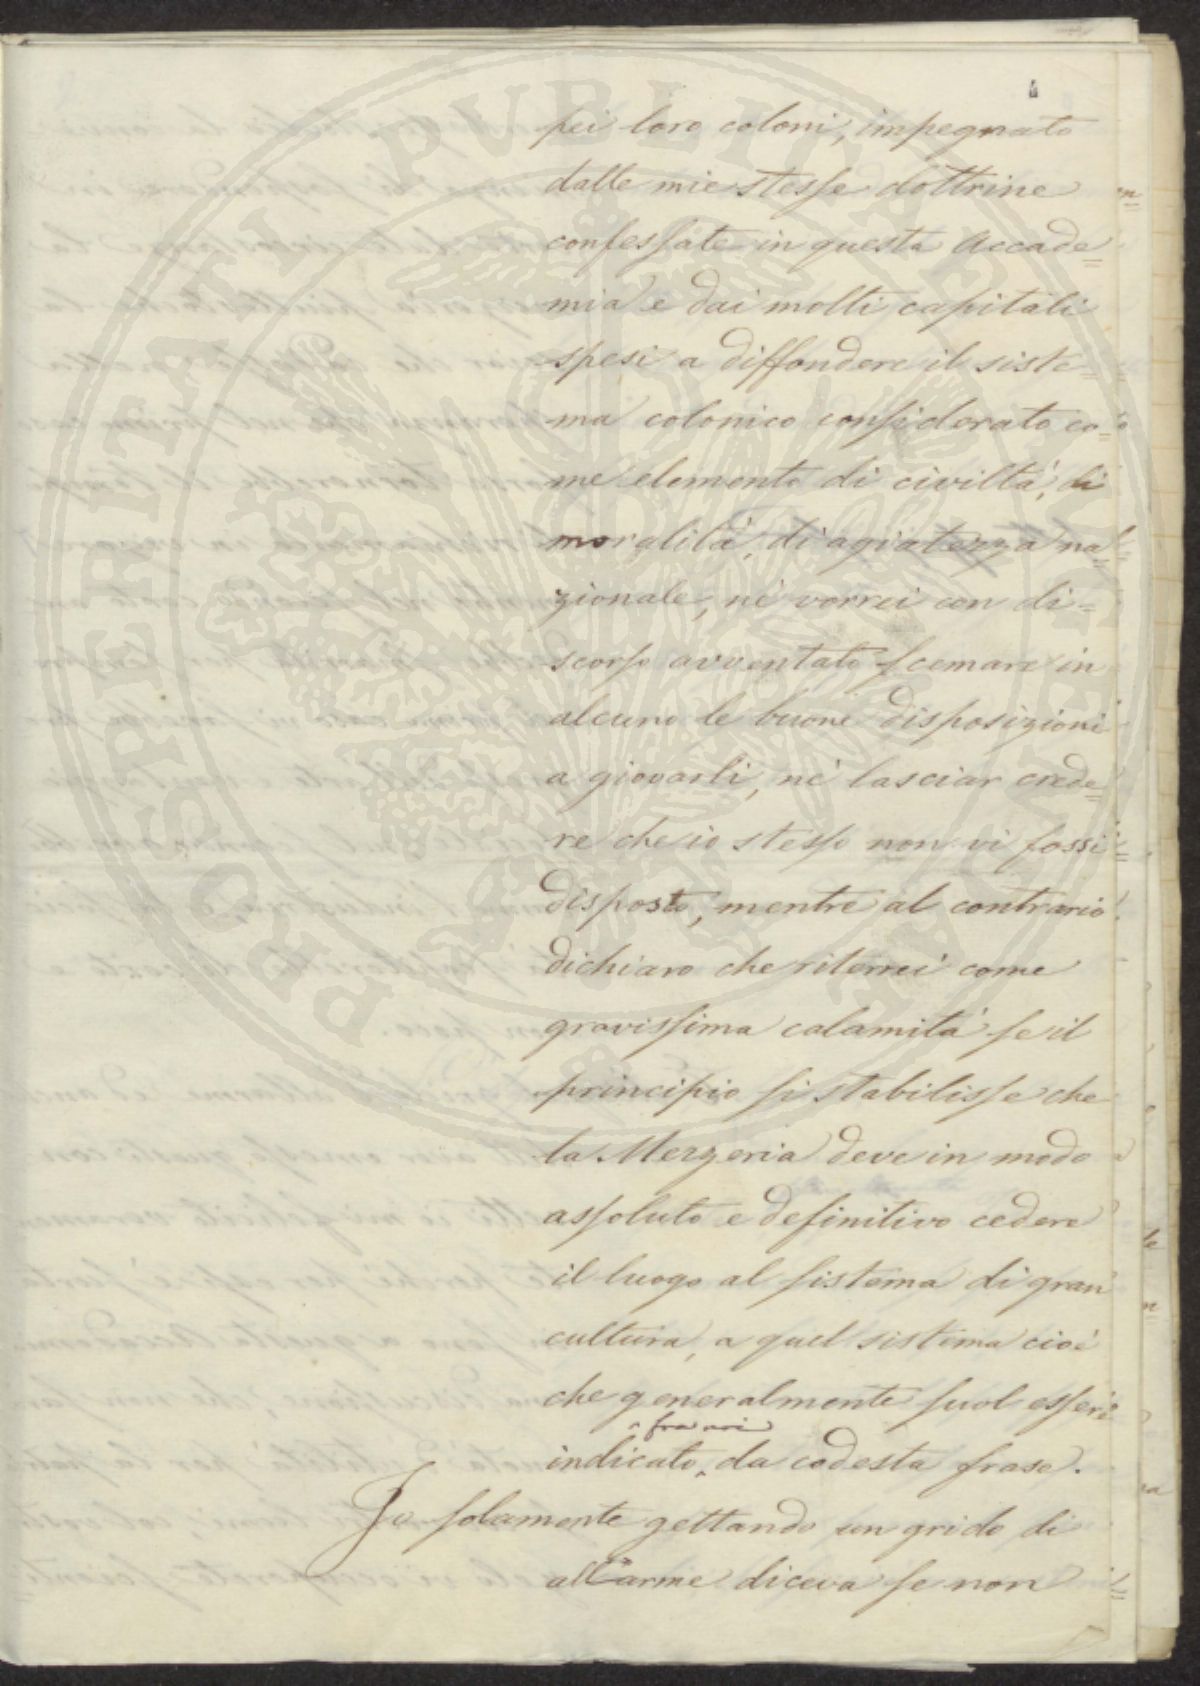 pei loro coloni, impegnato
dalle mie stesse dottrine
confessate in questa Accade=
mia e dai molti capitali
spesi a diffondere il siste=
ma colonico considerato co=
me elemento di civiltà, di
moralità, di agiatezza na=
zionale, nè vorrei con di=
scorso avventato scemare in
alcuno le buone disposizioni
a giovarli, nè lasciar crede=
re che io stesso non vi fossi
disposto, mentre al contrario
dichiaro che riterrei come
gravissima calamità se il
principio si stabilisse che
la Mezzeria deve in modo
assoluto e definitivo cedere
il luogo al sistema di gran
cultura, a quel sistema cioè
che generalmente suol essere
fra noi
indicato da codesta frase.
Io solamente gettando un grido di
all'arme diceva se non
PROSPERITATI PVBLICAE AVGENDAE